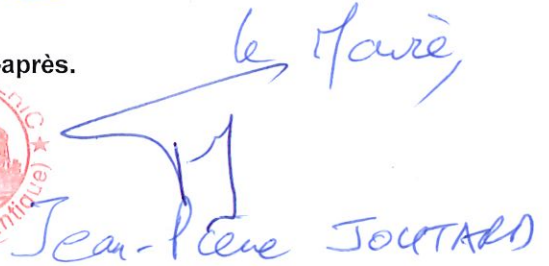 après.
le Maire,
Jean-Pierre JOUTARD